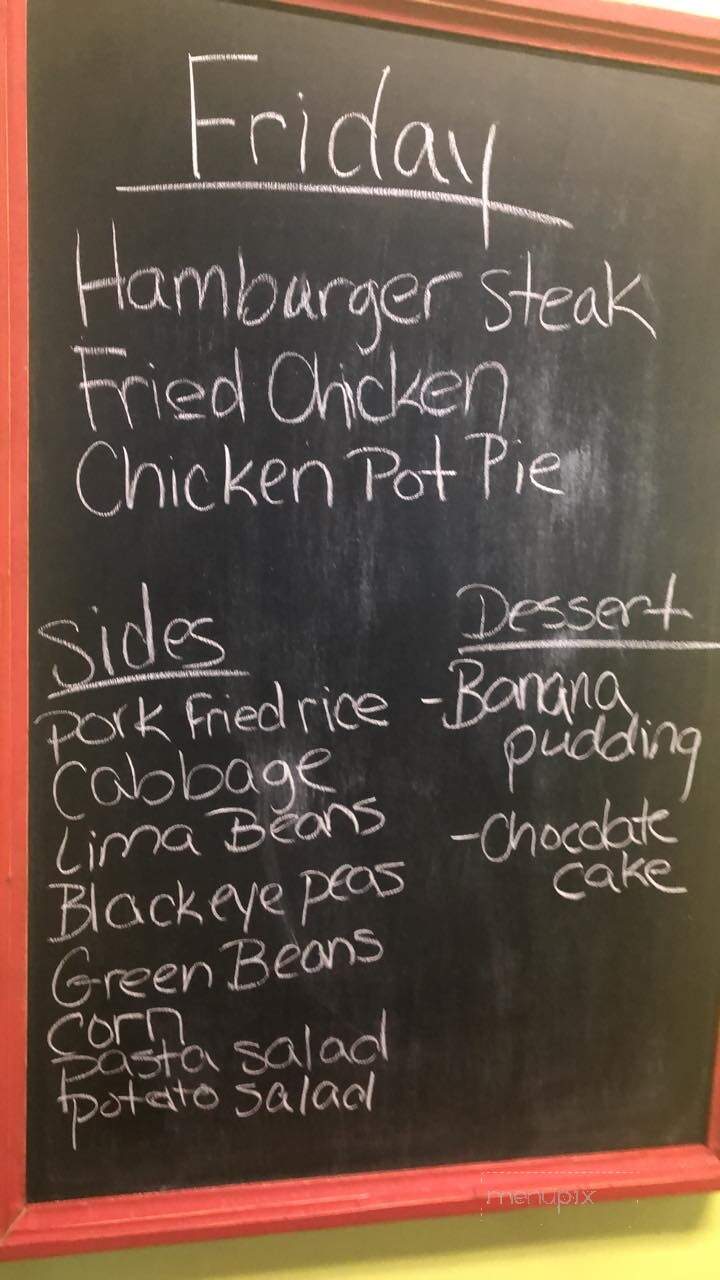 Friday
Hamburger Steak
Fried Chicken
Chicken Pot Pie
Sides
Pork Fried rice
Cabbage
Lima Beans
Blackeye peas
Green Beans
Corn
pasta salad
potato salad
Dessert
-Banana
pudding
-Chocolate
cake
menupix